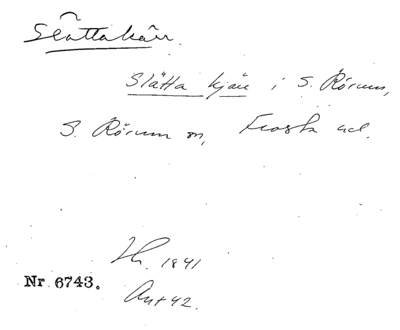 Slättakärr.
Slätta kjärr i S. Rörum,
S. Rörum sn, Frosta hd.
Hr. 1841
Nr 6743.
Ant 42.